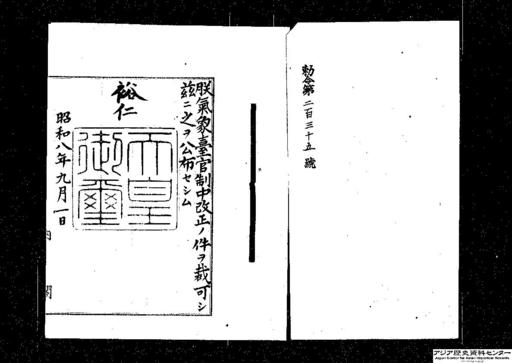 勅令第二百三十五號
朕氣象臺官制中改正ノ件ヲ裁可シ
茲ニ之ヲ公布セシム
裕仁
天皇
御璽
昭和八年九月一日
内閣
アジア歴史資料センター
Japan Center for Asian Historical Records